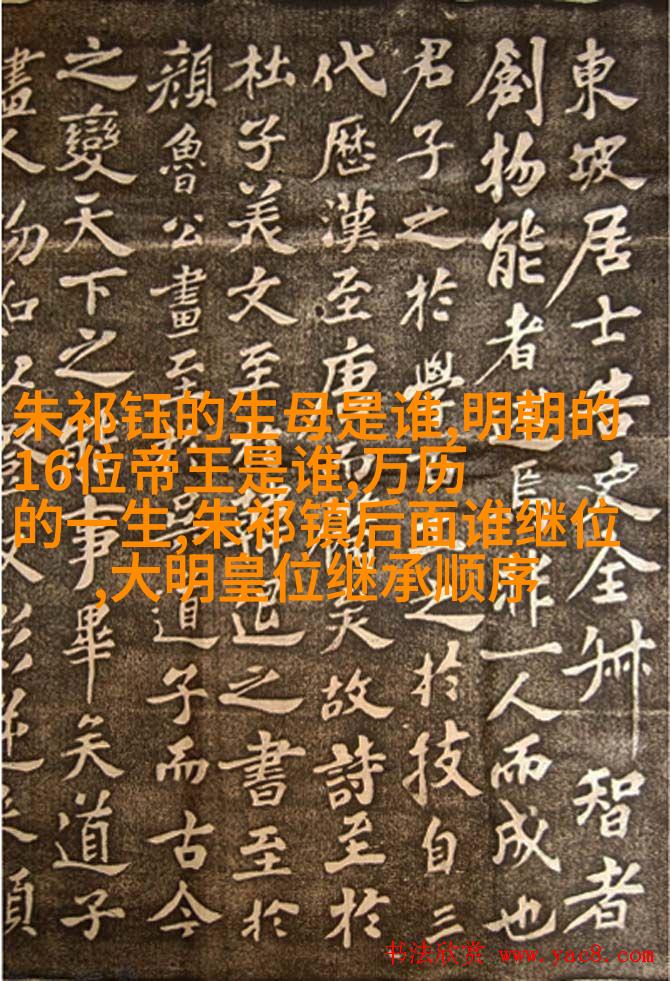 東坡居士告史全叔智者
創物能者焉非一人而成也
君子之於學之於技自三
代歷漢至唐而矣故詩至於
杜子美文至退之書至於
顏魯公畫至道子而古今
之變天下之能事畢矣道子
畫人物
朱祁钰的生母是谁,明朝的
16位帝王是谁,万历
的一生,朱祁镇后面谁继位
,大明皇位继承顺序
书法欣赏 www.yac8.com